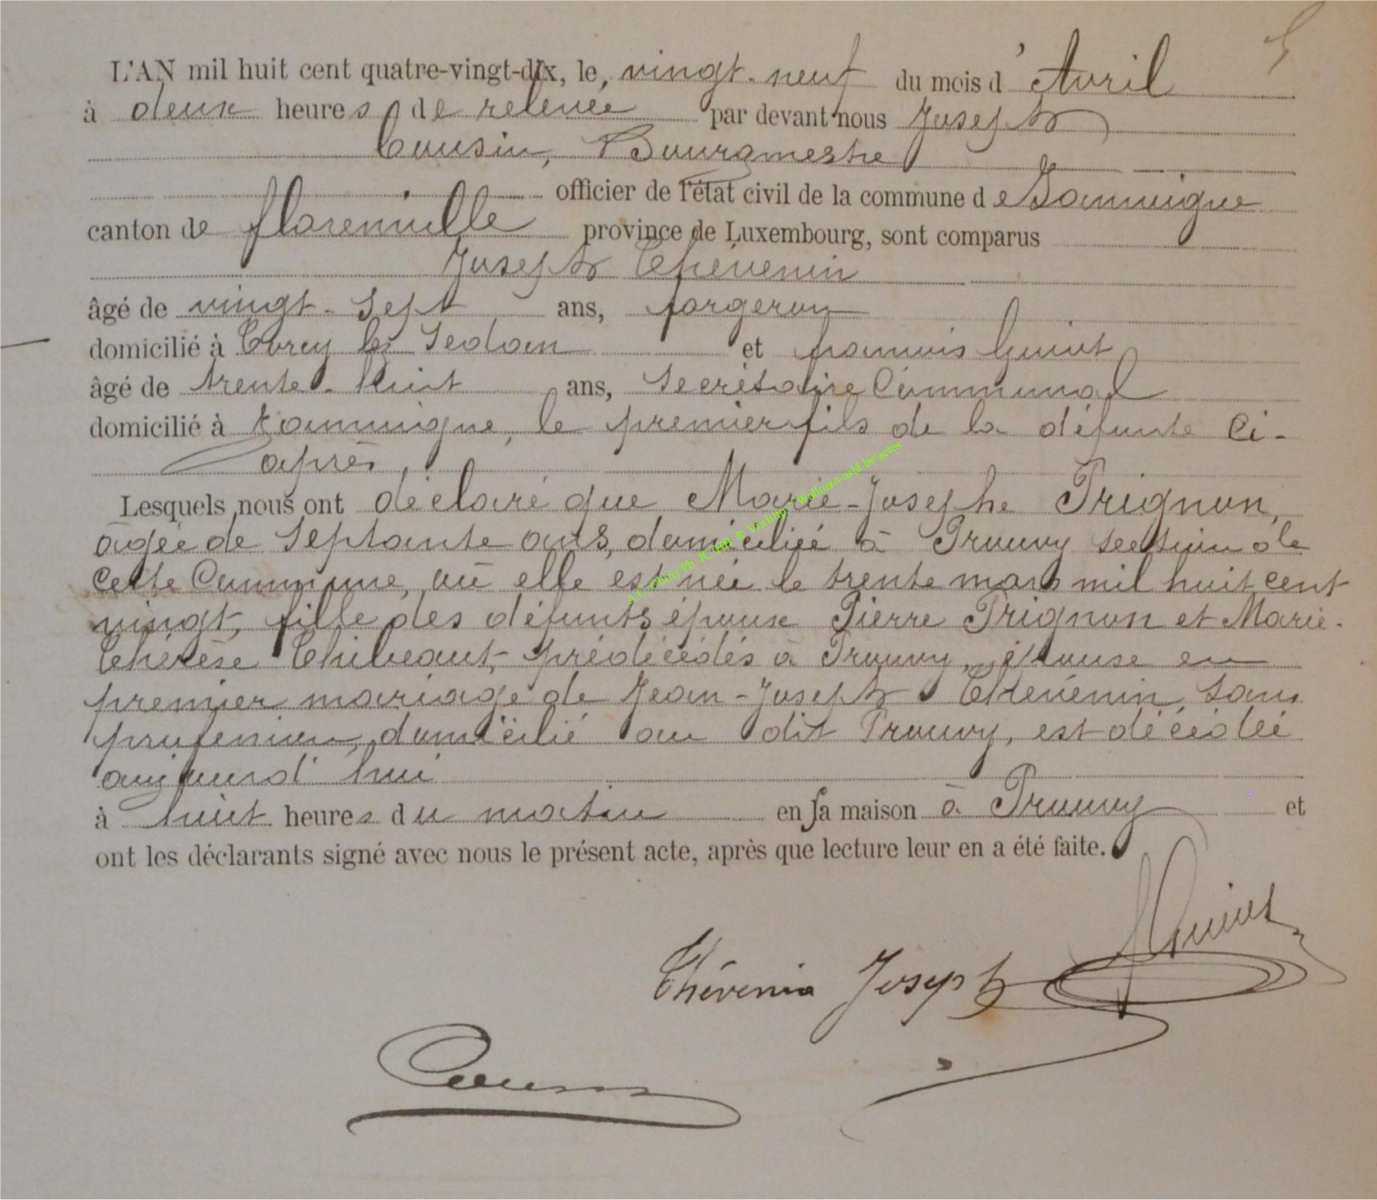 L'AN mil huit cent quatre-vingt-dix, le, vingt-neuf du mois d'Avril
à deux heures de relevée par devant nous Joseph
Cousin, Bourgmestre
officier de l'état civil de la commune de Jamoigne
canton de Florenville province de Luxembourg, sont comparus
Joseph Thévenin
âgé de vingt-sept ans, forgeron
domicilié à Torcy les Sedan et François Guiot
âgé de trente-huit ans, Secrétaire Communal
domicilié à Jamoigne, le premier fils de la défunte ci-
après,
Lesquels nous ont déclaré que Marie-Josephe Prignon,
âgée de septante ans, domiciliée à Prouvy section de
cette Commune, où elle est née le trente mars mil huit cent
vingt, fille des défunts époux Pierre Prignon et Marie-
Thérèse Thibeaut, prédécédés à Prouvy, épouse en
premier mariage de Jean-Joseph Thévenin, sans
profession, domicilié au dit Prouvy, est décédée
aujourd'hui
à huit heures du matin en sa maison à Prouvy et
ont les déclarants signé avec nous le présent acte, après que lecture leur en a été faite.
Guiot
Thévenin Joseph
Cousin